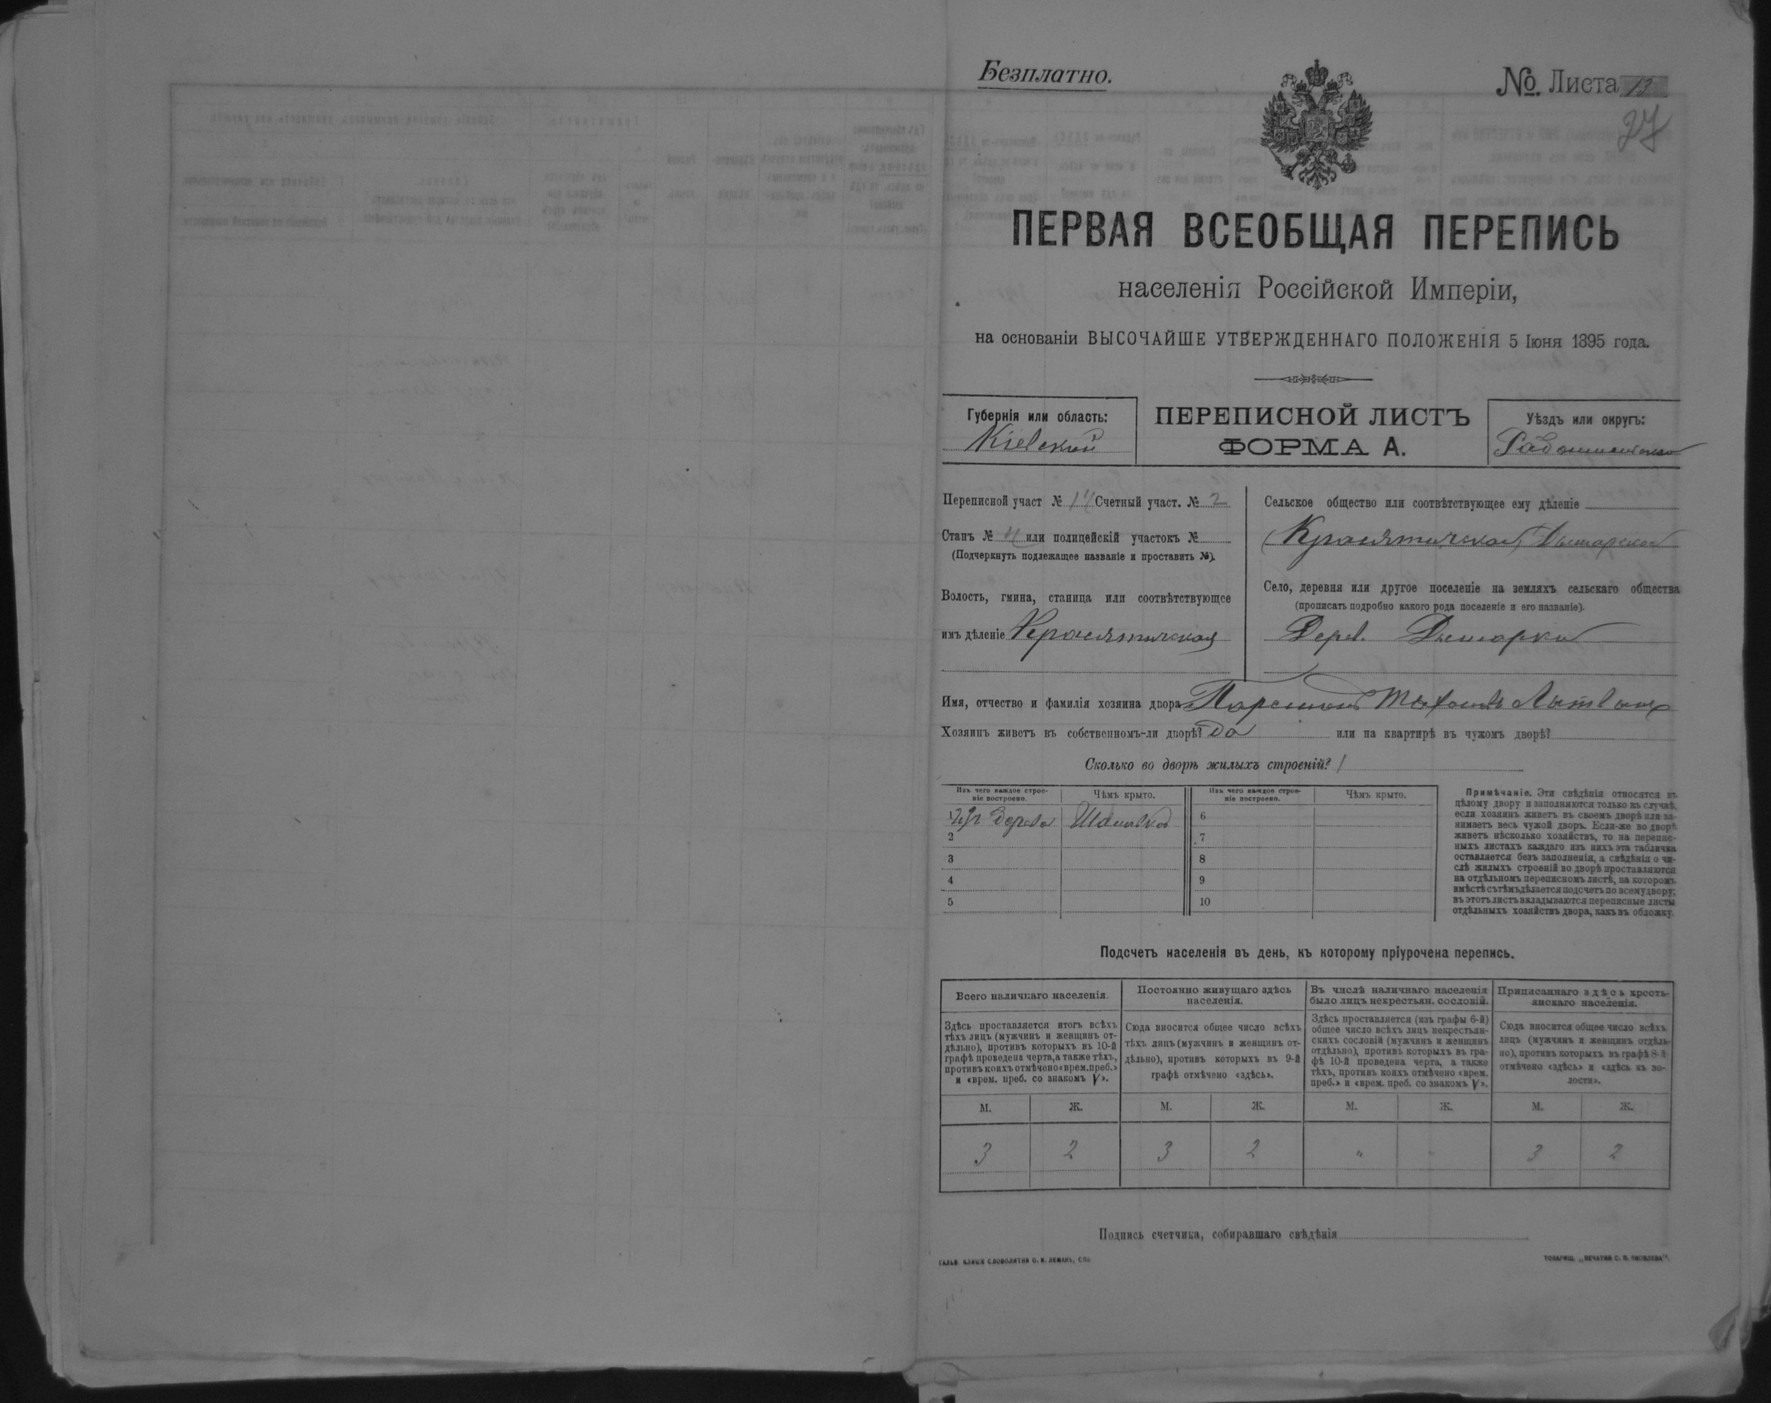 Безплатно.
№. Листа 13
27
ПЕРВАЯ ВСЕОБЩАЯ ПЕРЕПИСЬ
населенія Россійской Имперіи,
на основаніи ВЫСОЧАЙШЕ УТВЕРЖДЕННАГО ПОЛОЖЕНІЯ 5 Іюня 1895 года.
Губернія или область:
Кіевской
ПЕРЕПИСНОЙ ЛИСТЪ
ФОРМА А.
Уѣздъ или округъ:
Переписной участ № 14 Счетный участ. № 2
Станъ № 4 или полицейскій участокъ №
(Подчеркнуть подлежащее названіе и проставить №).
Волость, гмина, станица или соотвѣтствующее
имъ дѣленіе Красятичская
Сельское общество или соотвѣтствующее ему дѣленіе
Село, деревня или другое поселеніе на земляхъ сельскаго общества
(прописать подробно какого рода поселеніе и его названіе).
Дерев. Дымарка
Имя, отчество и фамилія хозяина двора
Хозяинъ живетъ въ собственномъ-ли дворѣ? Да или на квартирѣ въ чужомъ дворѣ?
Сколько во дворѣ жилыхъ строеній? 1
Изъ чего каждое строе-
ніе построено.
Чѣмъ крыто.
Изъ чего каждое строе-
ніе построено.
Чѣмъ крыто.
1 Изъ дерева
6
2
7
3
8
4
9
5
10
Примѣчаніе. Эти свѣдѣнія относятся къ
цѣлому двору и заполняются только въ случаѣ,
если хозяинъ живетъ въ своемъ дворѣ или за-
нимаетъ весь чужой дворъ. Если-же во дворѣ
живетъ нѣсколько хозяйствъ, то на перепис-
ныхъ листахъ каждаго изъ нихъ эта табличка
оставляется безъ заполненія, а свѣдѣнія о чи-
слѣ жилыхъ строеній во дворѣ проставляются
на отдѣльномъ переписномъ листѣ, на которомъ
вмѣстѣ съ тѣмъ дѣлается подсчетъ по всему двору;
въ этотъ листъ вкладываются переписные листы
отдѣльныхъ хозяйствъ двора, какъ въ обложку.
Подсчетъ населенія въ день, къ которому пріурочена перепись.
Всего наличнаго населенія.
Здѣсь проставляется итогъ всѣхъ
тѣхъ лицъ (мужчинъ и женщинъ от-
дѣльно), противъ которыхъ въ 10-й
графѣ проведена черта, а также тѣхъ,
противъ коихъ отмѣчено «врем. преб.»
и «врем. преб. со знакомъ V».
Постоянно живущаго здѣсь
населенія.
Сюда вносится общее число всѣхъ
тѣхъ лицъ (мужчинъ и женщинъ от-
дѣльно), противъ которыхъ въ 9-й
графѣ отмѣчено «здѣсь».
Въ числѣ наличнаго населенія
было лицъ некрестьян. сословій.
Здѣсь проставляется (изъ графы 6-й)
общее число всѣхъ лицъ некрестьян-
скихъ сословій (мужчинъ и женщинъ
отдѣльно), противъ которыхъ въ гра-
фѣ 10-й проведена черта, а также
тѣхъ, противъ коихъ отмѣчено «врем.
преб.» и «врем. преб. со знакомъ V».
Приписаннаго здѣсь кресть-
янскаго населенія.
Сюда вносится общее число всѣхъ
лицъ (мужчинъ и женщинъ отдѣль-
но), противъ которыхъ въ графѣ 8-й
отмѣчено «здѣсь» и «здѣсь въ во-
лости».
М. Ж. М. Ж. М. Ж. М. Ж.
3 2 3 2 " " 3 2
Подпись счетчика, собиравшаго свѣдѣнія
СЛОВОЛИТНЯ О. И. ЛЕМАНЪ, СПБ.
ТОВАРИЩ. „ПЕЧАТНЯ С. П. ЯКОВЛЕВА".